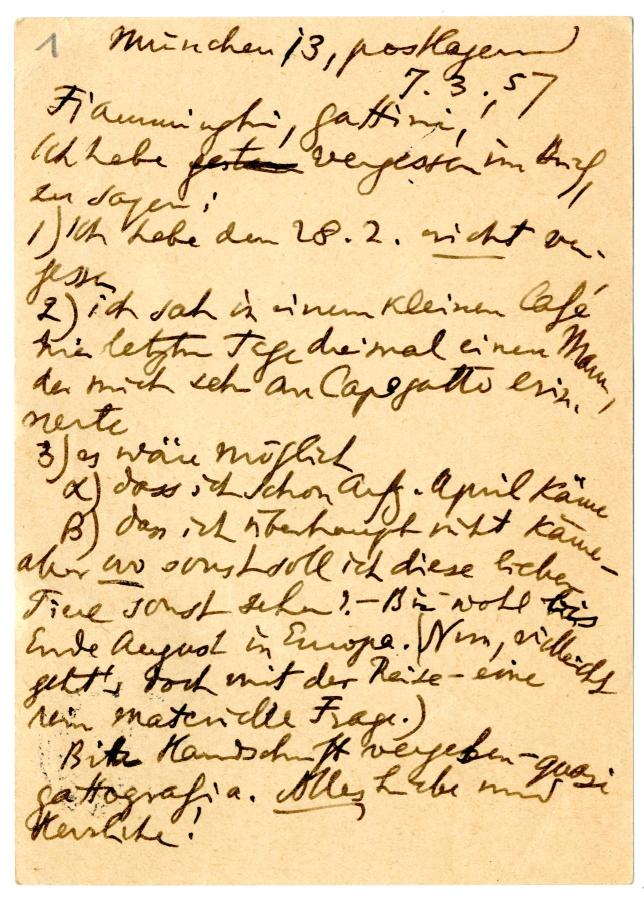 1
München 13, postlagernd
7.3.57
Fiamminghi, gattini,!
Ich habe gestern vergessen im Brief,
zu sagen:
1) Ich habe den 28.2. nicht ver-
gessen
2) ich sah in einem kleinen Café
hier letzte Tage dreimal einen Mann,
der mich sehr an Capogatto erin-
nerte
3) es wäre möglich
α) dass ich schon Anfg. April käme
β) dass ich überhaupt nicht käme –
aber wo sonst soll ich diese lieben
Tiere sonst sehen? – Bin wohl bis
Ende August in Europa. (Nun, vielleicht
geht's doch mit der Reise – eine
rein materielle Frage.)
Bitte Handschrift vergeben – quasi
gattografia. Alles Liebe und
Herzliche!